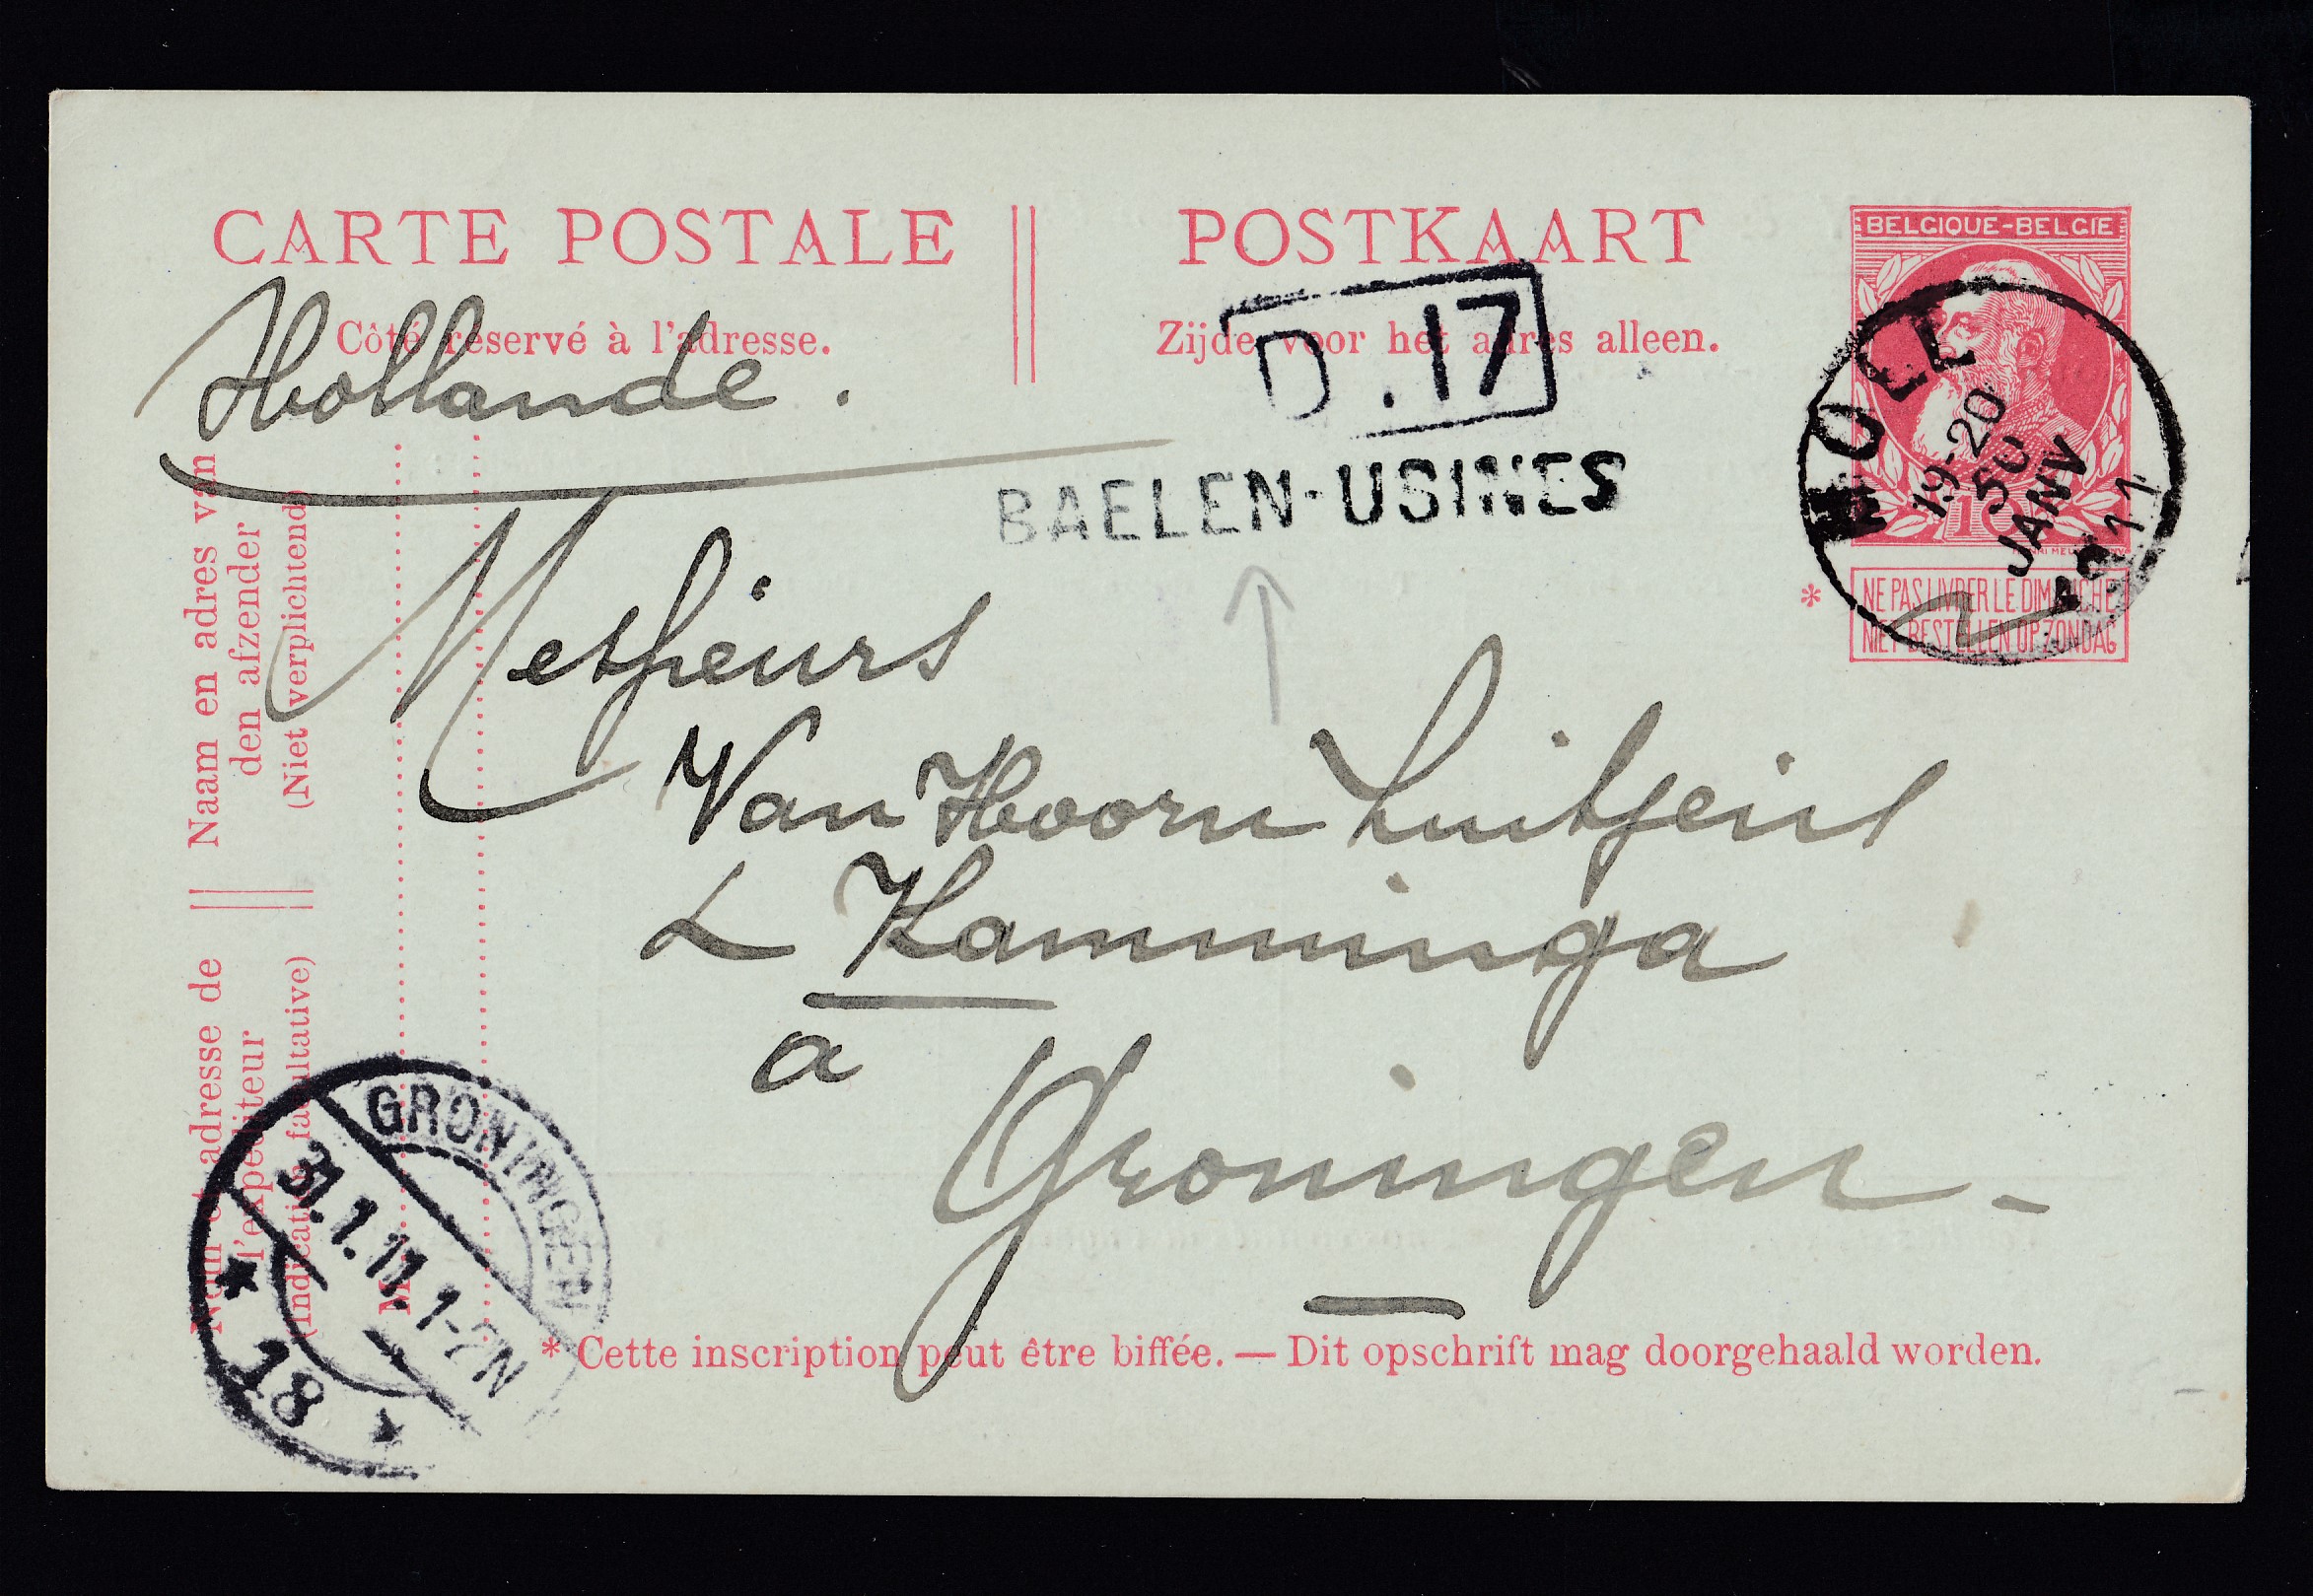 CARTE POSTALE
POSTKAART
BELGIQUE-BELGIE
Côté réservé à l'adresse.
Zijde voor het adres alleen.
D.17
Hollande.
BAELEN-USINES
MOLL
19-20
30
JANV
1911
10
* NE PAS LIVRER LE DIMANCHE
NIET BESTELLEN OP ZONDAG
Naam en adres van
den afzender
(Niet verplichtend)
Nom et adresse de
l'expéditeur
(Indication facultative)
M
Messieurs
Van Hoorn Luitjens
& Kamminga
a
Groningen -
GRONINGEN
31.1.11.1-2N
18
* Cette inscription peut être biffée. — Dit opschrift mag doorgehaald worden.